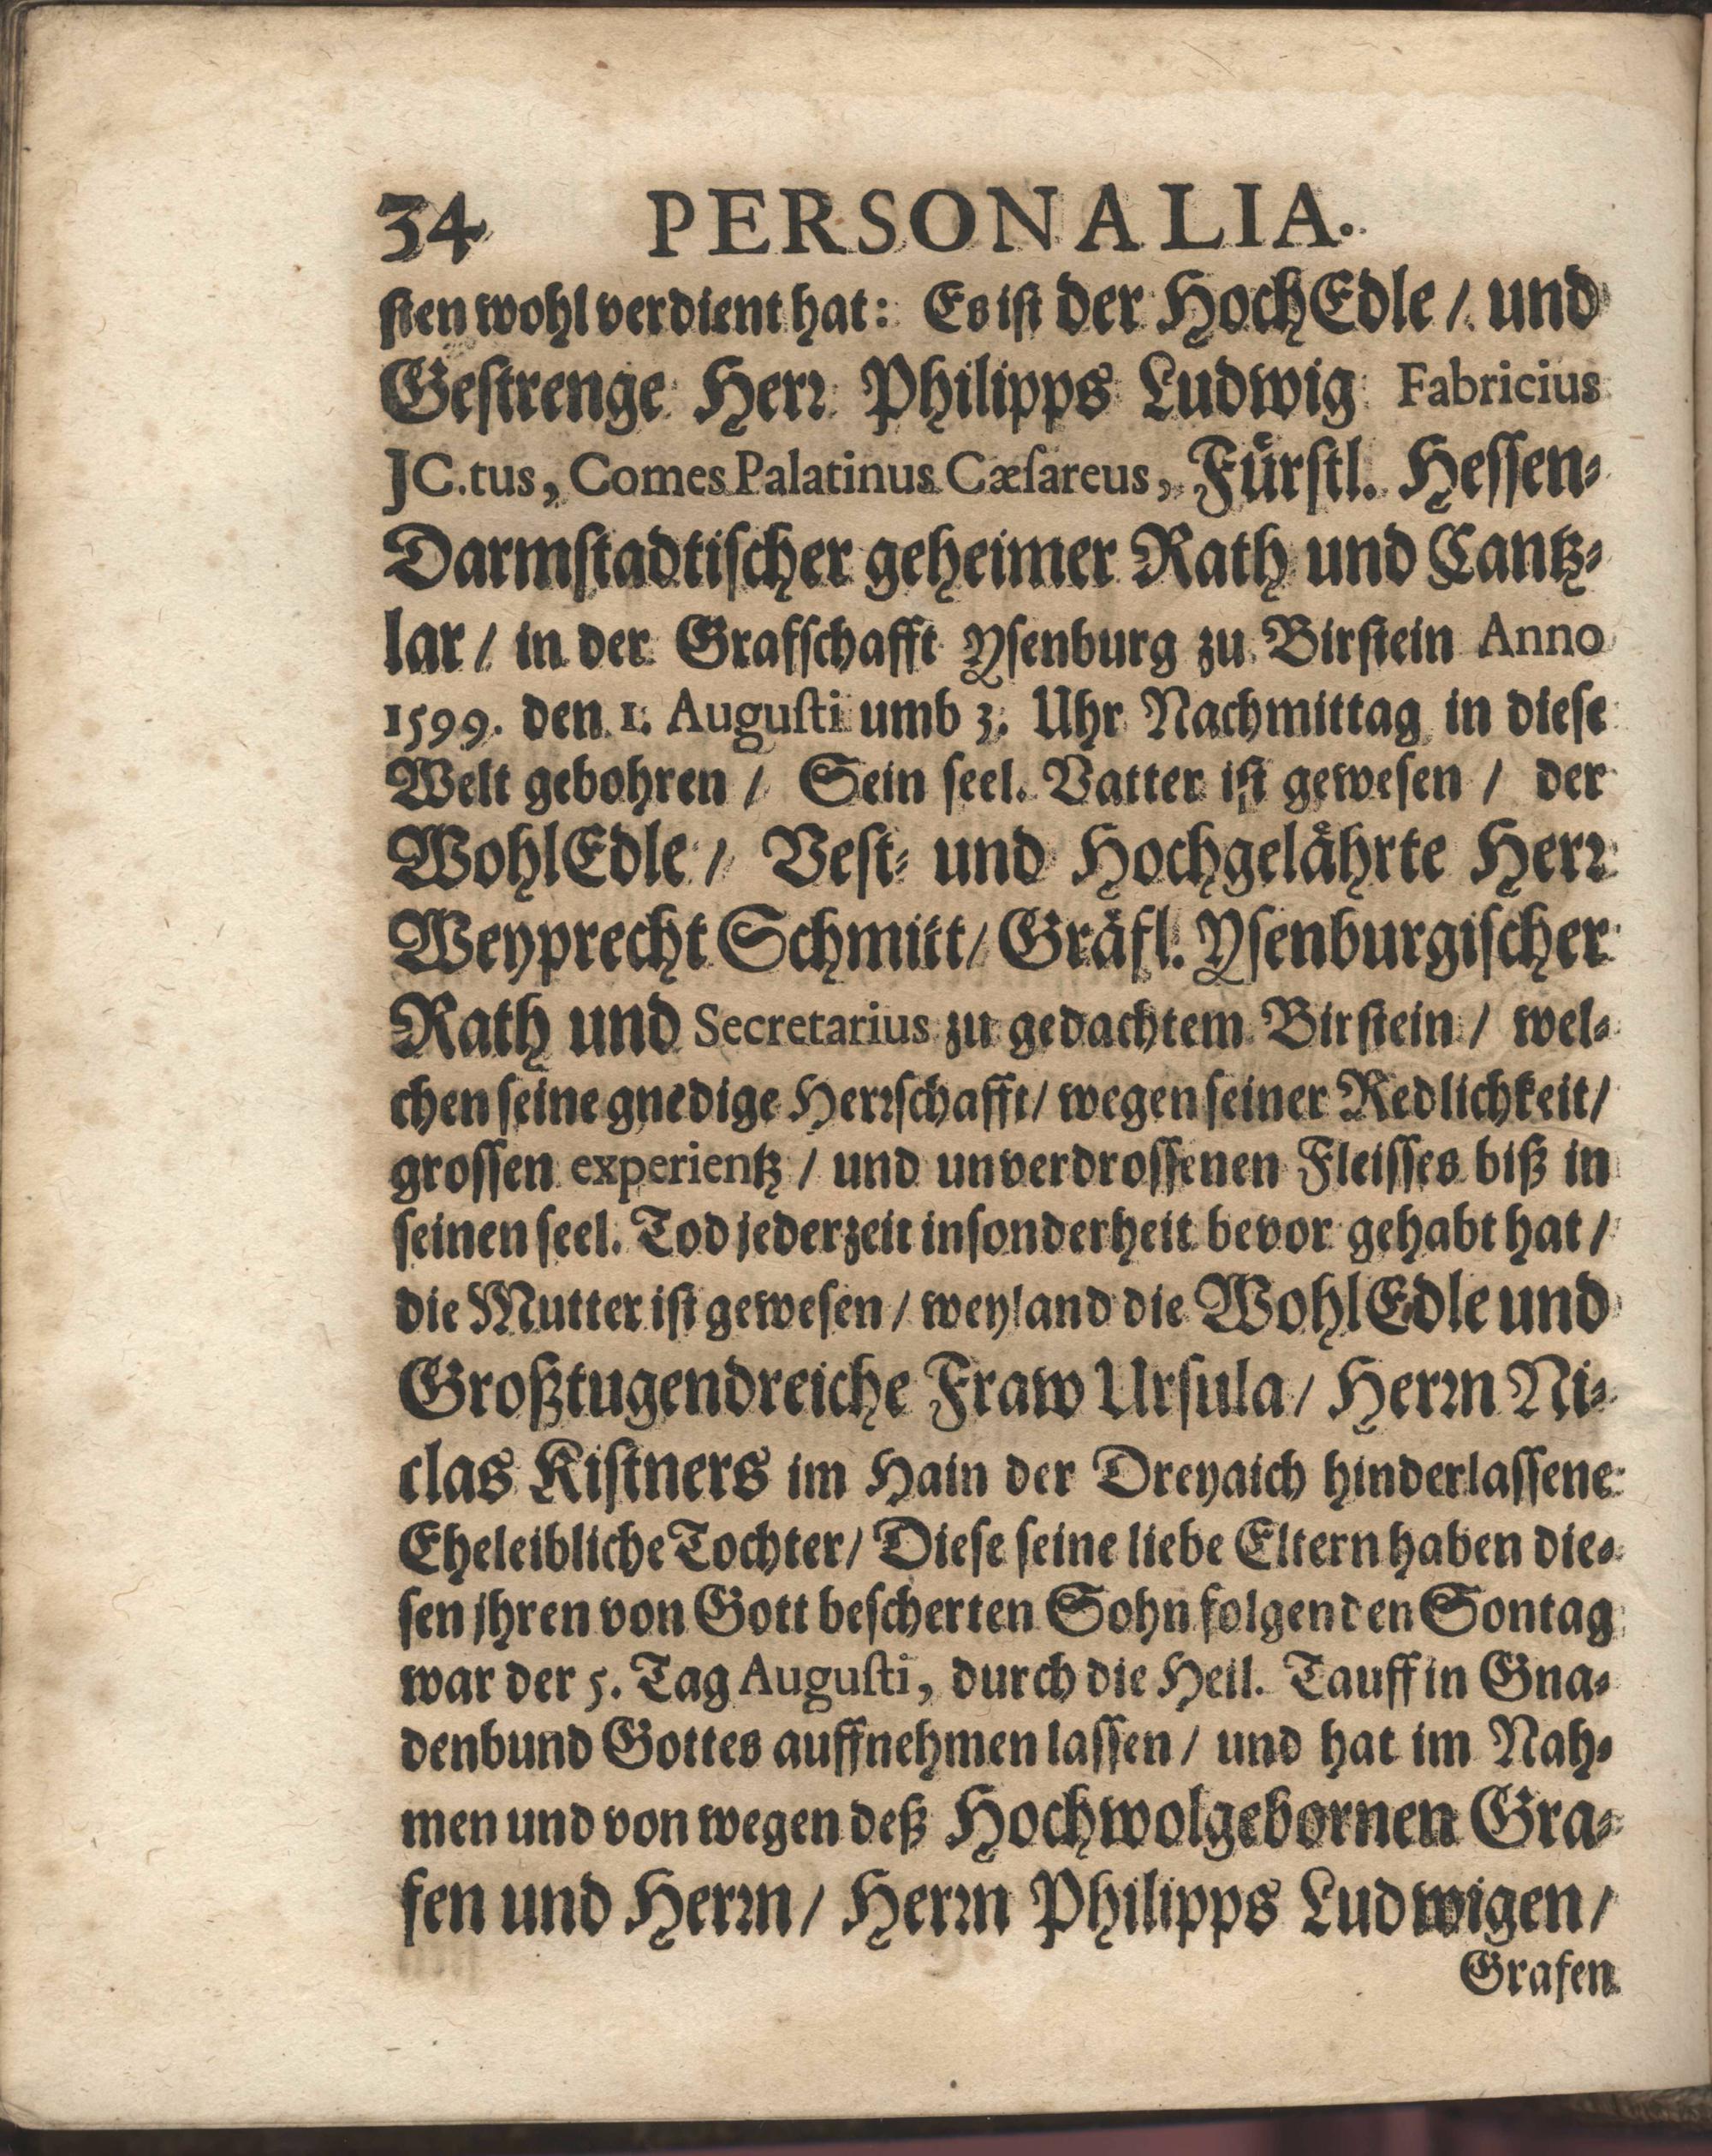 34 PERSONALIA.
sten wohl verdient hat: Es ist der HochEdle / und
Gestrenge Herꝛ Philipps Ludwig Fabricius
JC.tus, Comes Palatinus Cæsareus, Fürstl. Hessen-
Darmstadtischer geheimer Rath und Cantz-
lar / in der Grafschafft Ysenburg zu Birstein Anno
1599. den 1. Augusti umb 3. Uhr Nachmittag in diese
Welt gebohren / Sein seel. Vatter ist gewesen / der
WohlEdle / Vest- und Hochgelährte Herꝛ
Weyprecht Schmitt / Gräfl. Ysenburgischer
Rath und Secretarius zu gedachtem Birstein / wel-
chen seine gnedige Herꝛschafft / wegen seiner Redlichkeit /
grossen experientz / und unverdrossenen Fleisses biß in
seinen seel. Tod jederzeit insonderheit bevor gehabt hat /
die Mutter ist gewesen / weyland die WohlEdle und
Großtugendreiche Fraw Ursula / Herꝛn Ni-
clas Kistners im Hain der Dreyaich hinderlassene
Eheleibliche Tochter / Diese seine liebe Eltern haben die-
sen jhren von Gott bescherten Sohn folgenden Sontag
war der 5. Tag Augusti, durch die Heil. Tauff in Gna-
denbund Gottes auffnehmen lassen / und hat im Nah-
men und von wegen deß Hochwolgebornen Gra-
fen und Herꝛn / Herꝛn Philipps Ludwigen /
Grafen